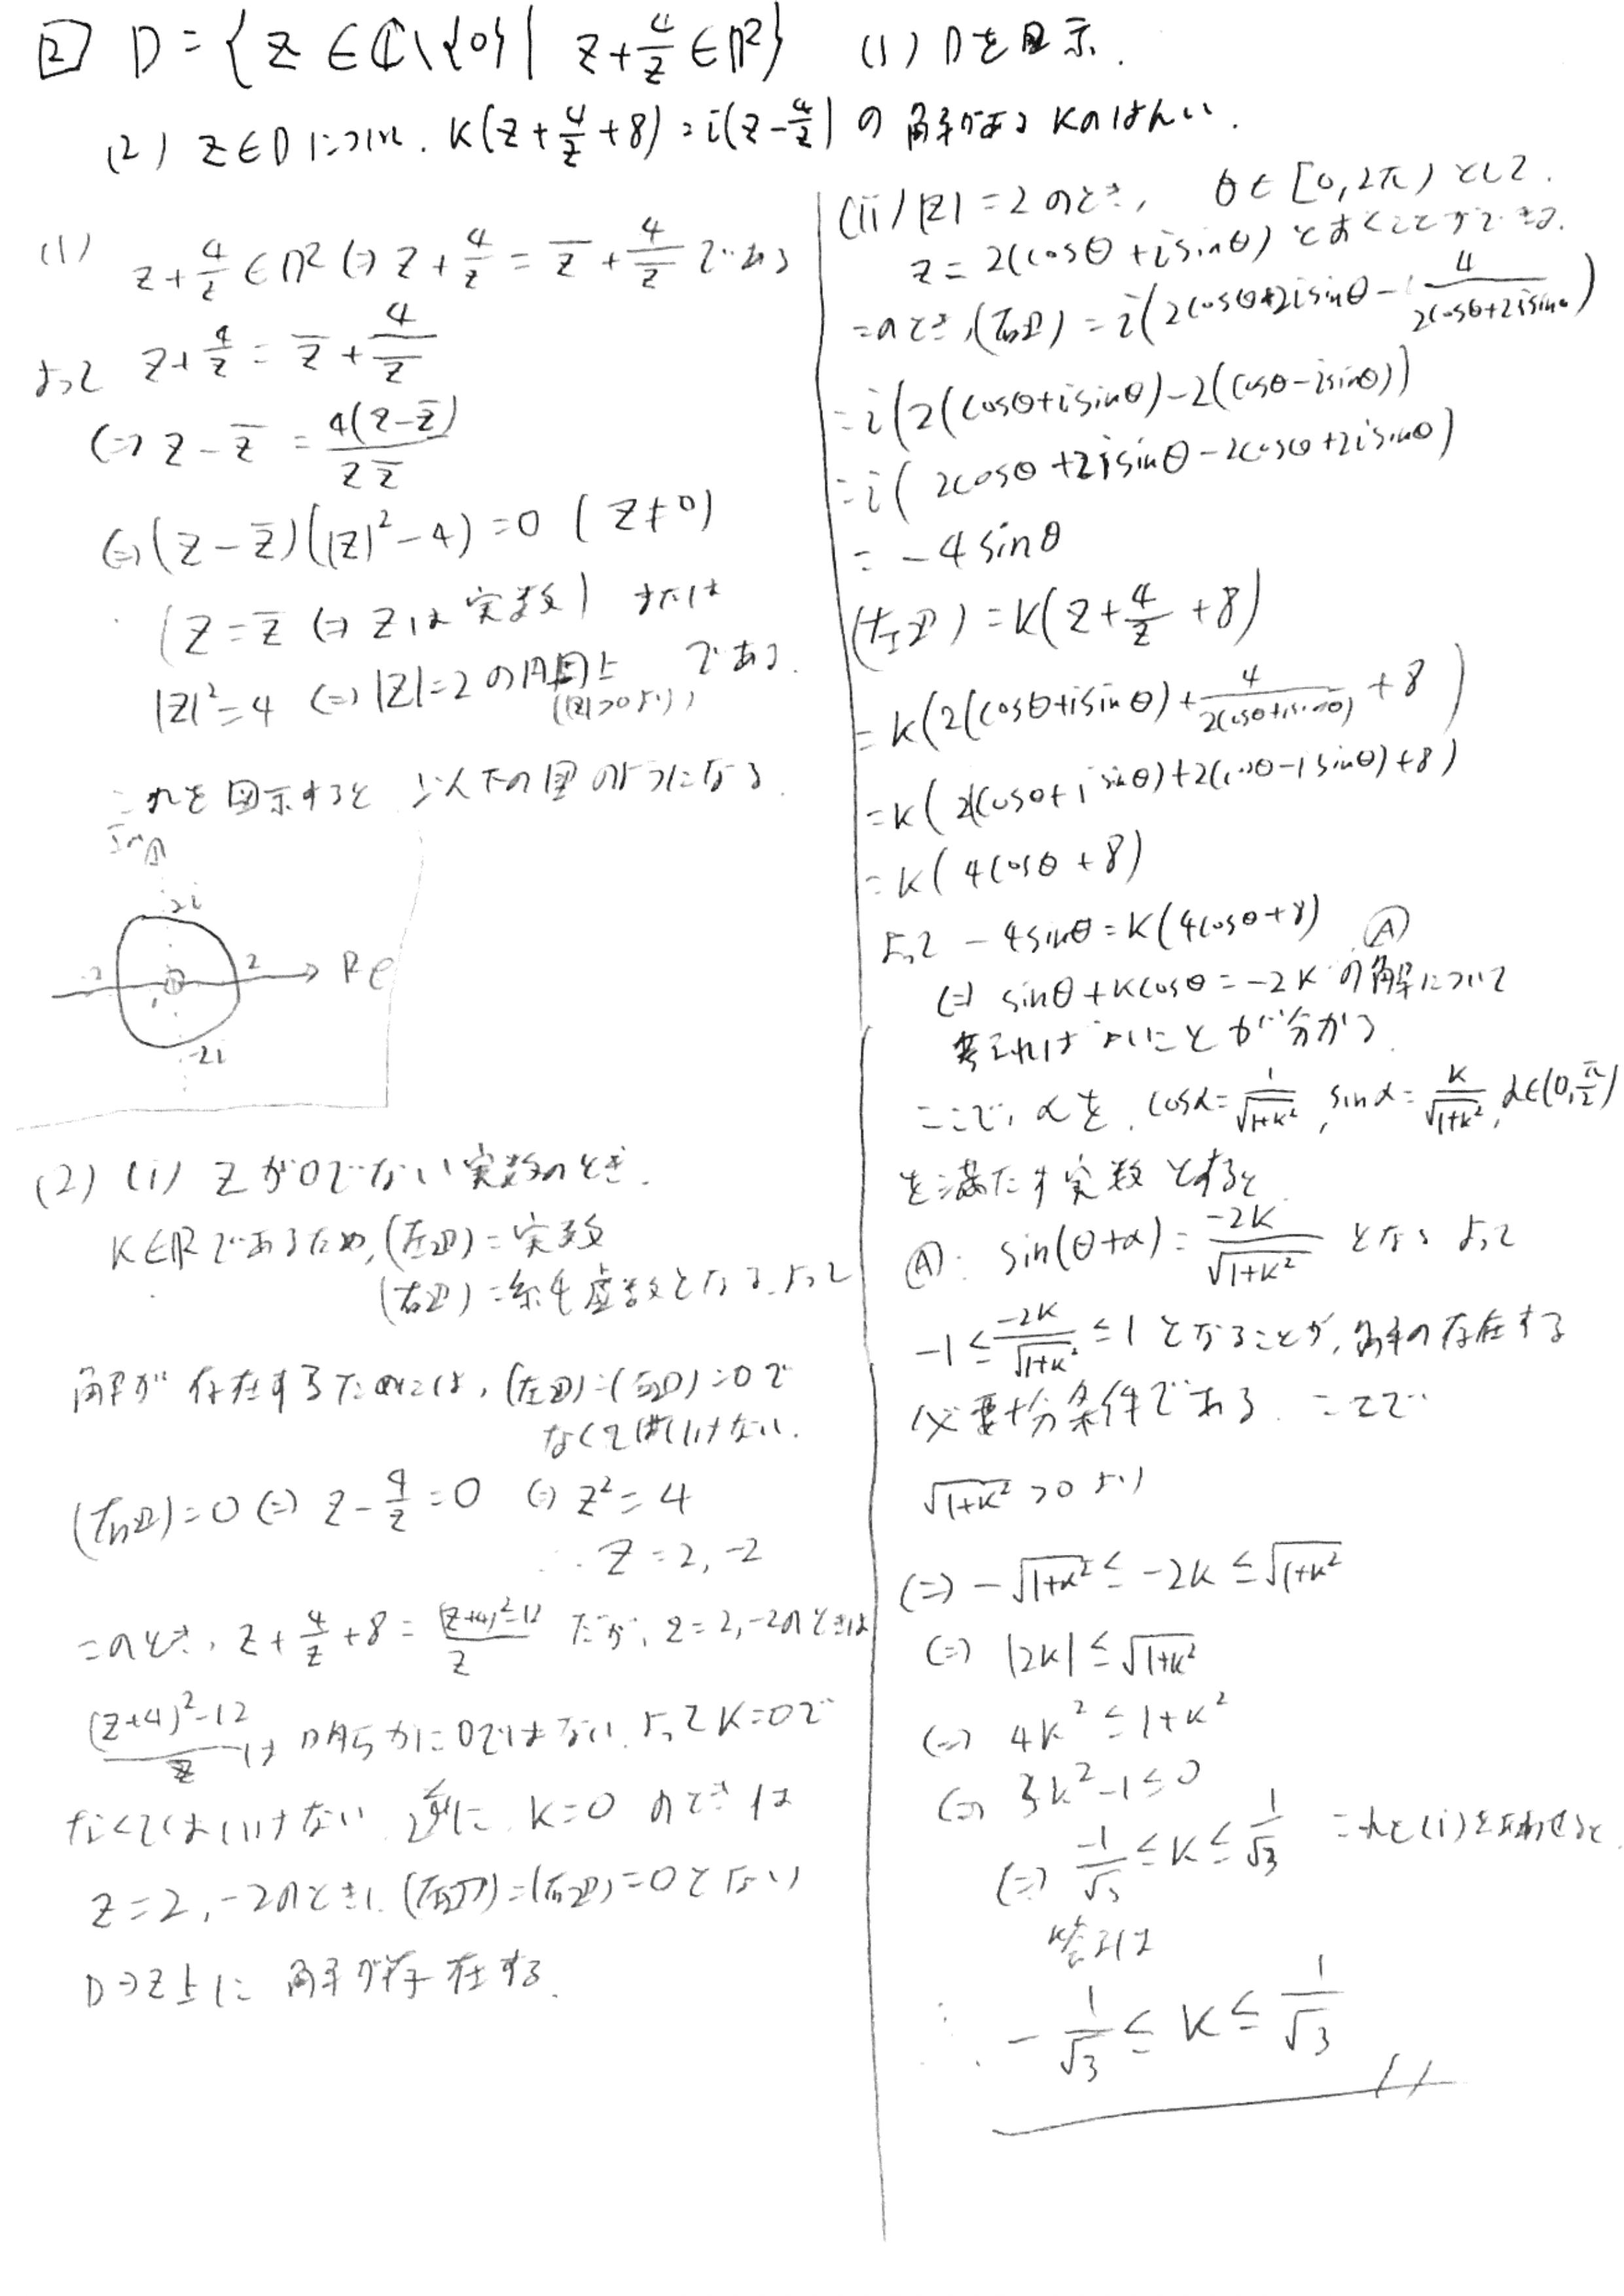 [2] D = {z ∈ ℂ\{0} | z + 4/z ∈ ℝ} (1) Dを図示.
(2) z ∈ D について. k(z + 4/z + 8) = i(z - 4/z) の解がある kのはんい.
(1)
z + 4/z ∈ ℝ ⇔ z + 4/z = z̄ + 4/z̄ である
よって z + 4/z = z̄ + 4/z̄
⇔ z - z̄ = 4(z - z̄)/(z z̄)
⇔ (z - z̄)(|z|² - 4) = 0 (z ≠ 0)
(z = z̄ ⇔ zは実数) または
|z|² = 4 ⇔ |z| = 2 の円周上 である.
(|z|>0より)
これを図示すると 以下の図のようになる.
Im
2i
-2 2 Re
-2i
(2) (i) zが0でない実数のとき.
k∈ℝであるため, (左辺) = 実数
(右辺) = 純虚数となる. よって
解が存在するためには, (左辺)=(右辺)=0で
なくてはいけない.
(右辺) = 0 ⇔ z - 4/z = 0 ⇔ z² = 4
∴ z = 2, -2
このとき, z + 4/z + 8 = ((z+4)² - 12)/z だが, z = 2, -2のときは
((z+4)² - 12)/z は 明らかに0ではない. よって k=0で
なくてはいけない 逆に k=0 のときは
z = 2, -2のとき (左辺)=(右辺)=0となり
D∋z上に 解が存在する.
(ii) |z| = 2 のとき, θ ∈ [0, 2π) として.
z = 2(cosθ + i sinθ) とおくことができる.
このとき, (右辺) = i(2cosθ + 2i sinθ - 4/(2cosθ + 2i sinθ))
= i(2(cosθ + i sinθ) - 2(cosθ - i sinθ))
= i(2cosθ + 2i sinθ - 2cosθ + 2i sinθ)
= -4 sinθ
(左辺) = k(z + 4/z + 8)
= k(2(cosθ + i sinθ) + 4/(2(cosθ + i sinθ)) + 8)
= k(2(cosθ + i sinθ) + 2(cosθ - i sinθ) + 8)
= k(4cosθ + 8)
よって -4sinθ = k(4cosθ + 8) Ⓐ
⇔ sinθ + k cosθ = -2k の解について
考えればよいことが分かる
ここで, αを, cosα = 1/√(1+k²), sinα = k/√(1+k²), α∈(0, π/2)
を満たす実数とすると
Ⓐ: sin(θ+α) = -2k/√(1+k²) となる よって
-1 ≤ -2k/√(1+k²) ≤ 1 となることが, 解の存在する
必要十分条件である. ここで
√(1+k²) > 0 より
⇔ -√(1+k²) ≤ -2k ≤ √(1+k²)
⇔ |2k| ≤ √(1+k²)
⇔ 4k² ≤ 1+k²
⇔ 3k² - 1 ≤ 0
⇔ -1/√3 ≤ k ≤ 1/√3 これと(i)を合わせると
答えは
∴ -1/√3 ≤ k ≤ 1/√3